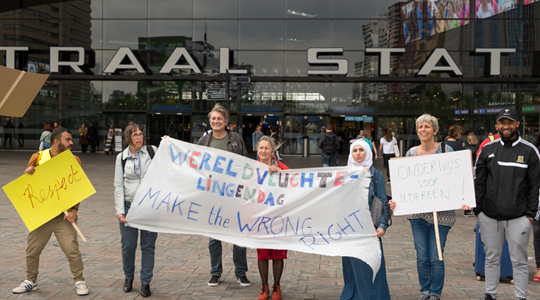 TRAAL STAT
Respect
WERELDVLUCHTE-
LINGENDAG
MAKE the WRONG
RIGHT
ONDERWIJS
VOOR
IEDEREEN!